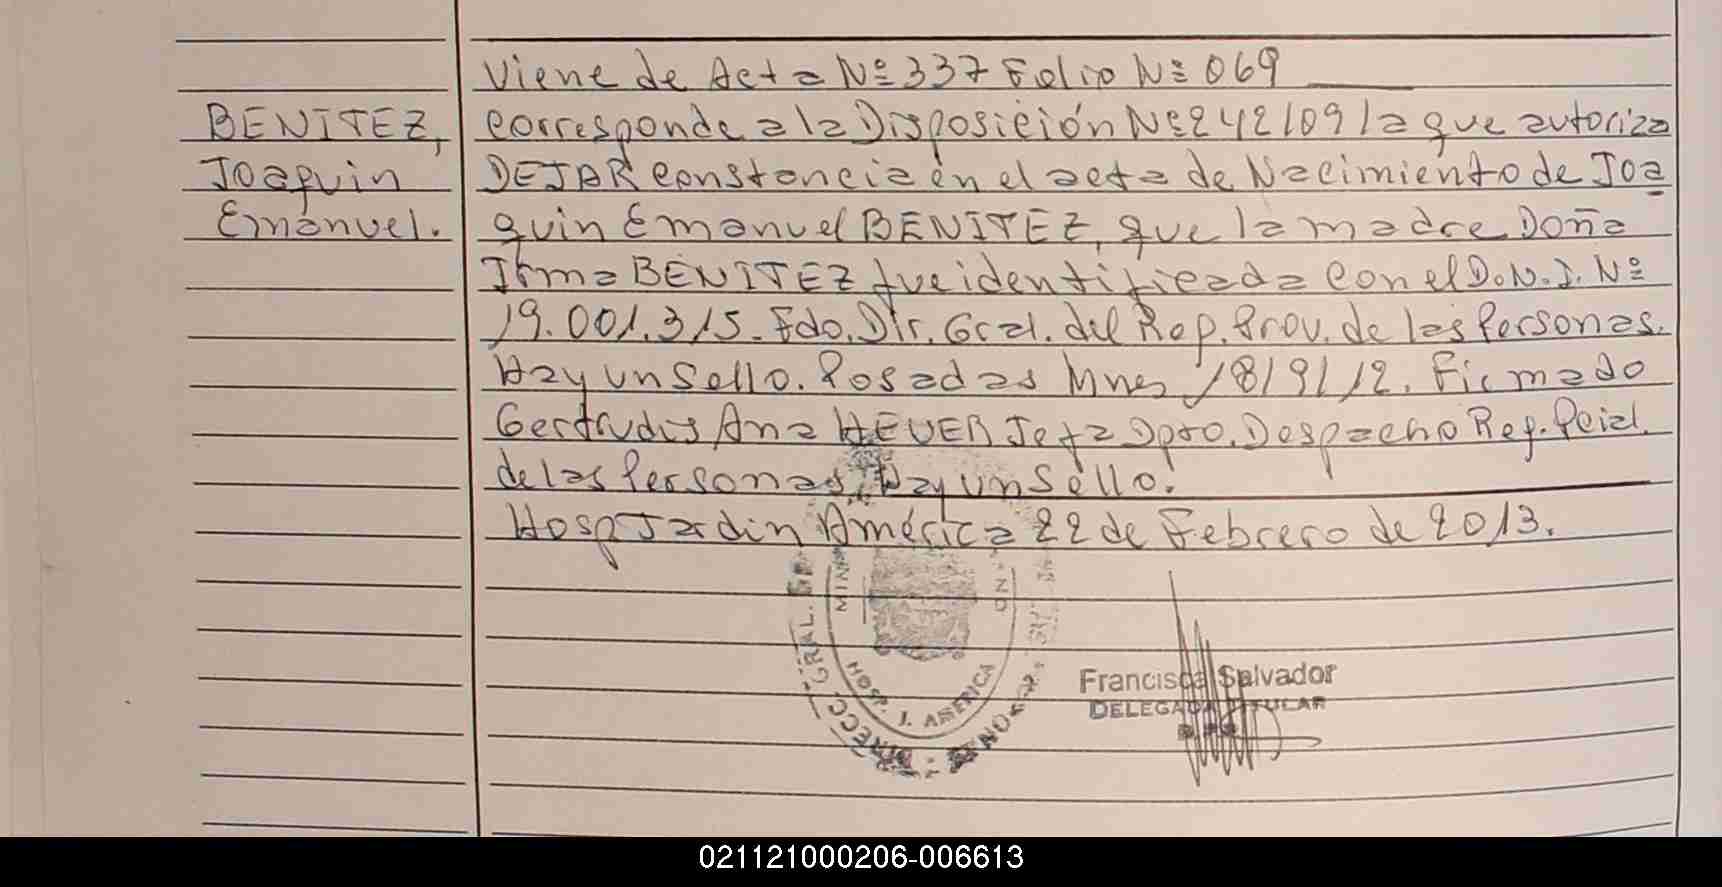 Viene de Acta Nº 337 Folio Nº 069
BENITEZ,
Joaquin
Emanuel.
corresponde a la Disposición Nº 242/09 la que autoriza
DEJAR constancia en el acta de Nacimiento de Joa
quin Emanuel BENITEZ, que la madre Doña
Irma BENITEZ fue identificada con el D.N.I. Nº
19.001.315. Fdo. Dir. Gral. del Rep. Prov. de las Personas.
Hay un Sello. Posadas Mnes 18/9/12. Firmado
Gertrudis Ana HEUER Jefa Dpto. Despacho Reg. Pcial.
de las Personas, Hay un Sello.
Hosp Jardin América 22 de Febrero de 2013.
DIRECC. GRAL.
HOSP. J. AMERICA
Francisca Salvador
DELEGADA TITULAR
021121000206-006613